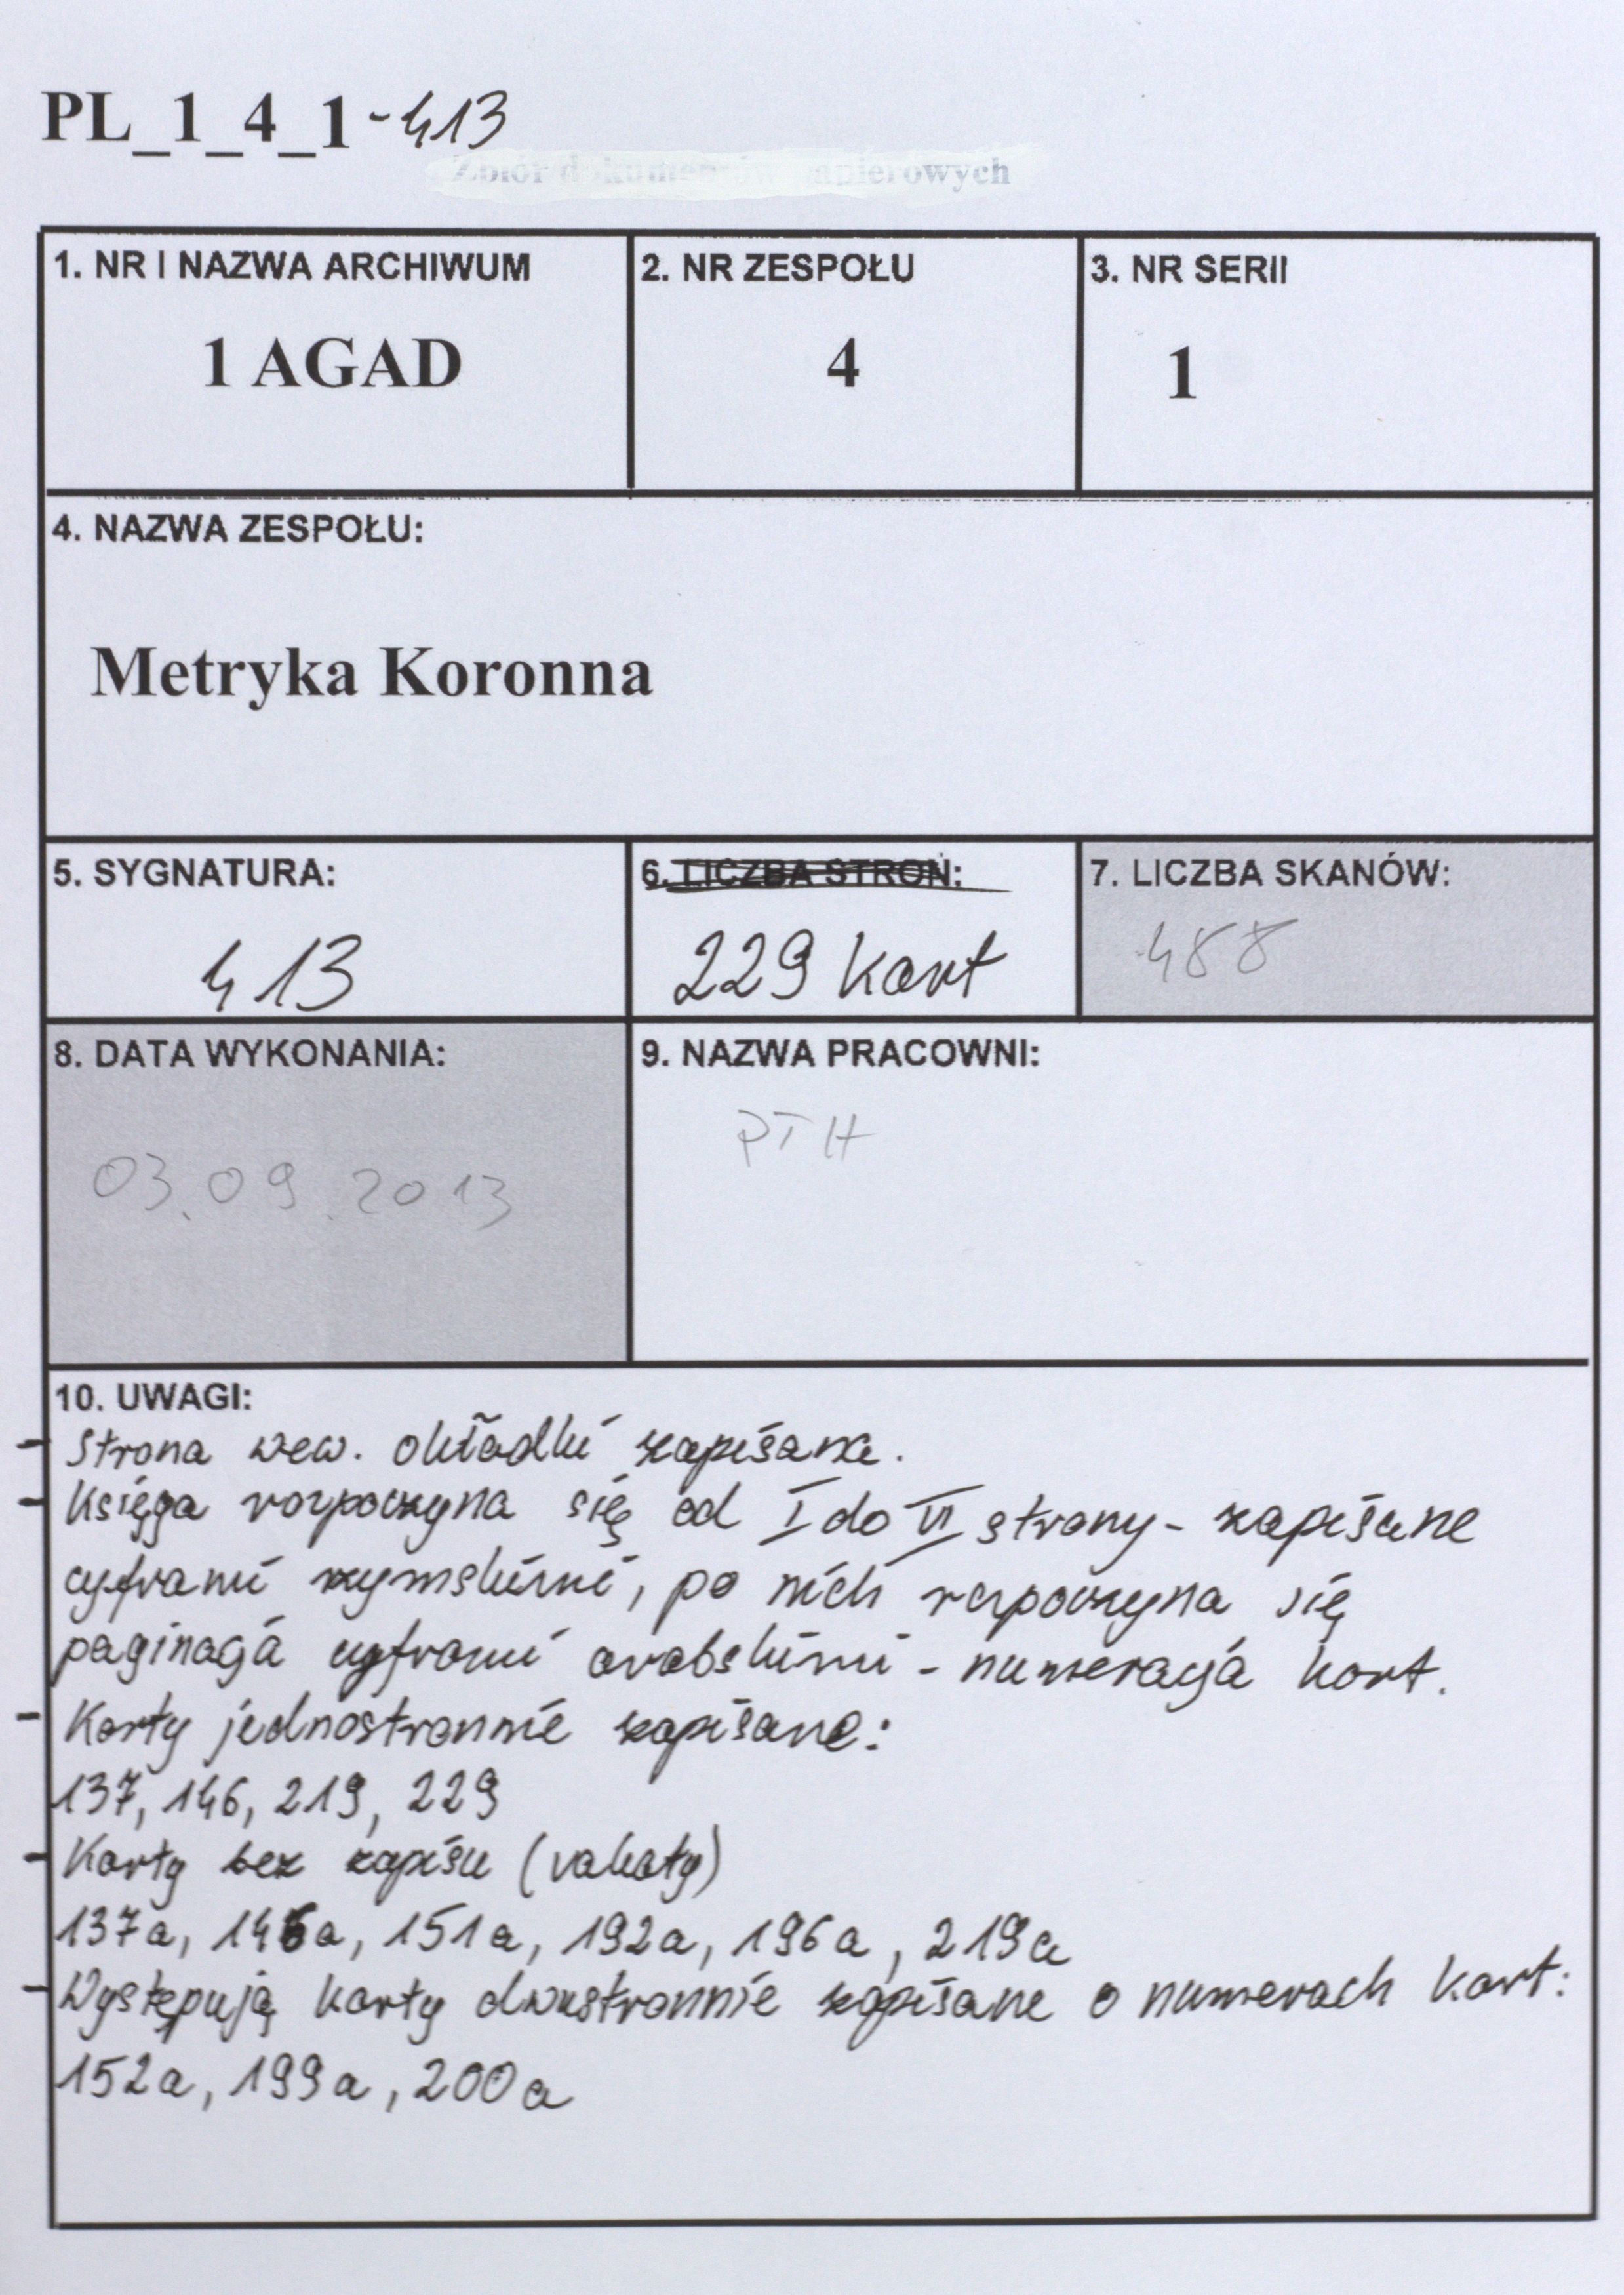 PL_1_4_1-413
Zbiór dokumentów papierowych
1. NR I NAZWA ARCHIWUM
1 AGAD
2. NR ZESPOŁU
4
3. NR SERII
1
4. NAZWA ZESPOŁU:
Metryka Koronna
5. SYGNATURA:
413
6. LICZBA STRON:
229 kart
7. LICZBA SKANÓW:
488
8. DATA WYKONANIA:
03.09.2013
9. NAZWA PRACOWNI:
PTH
10. UWAGI:
- Strona wew. okładki zapisana.
- Księga rozpoczyna się od I do VI strony - zapisane
cyframi rzymskimi, po nich rozpoczyna się
paginacja cyframi arabskimi - numeracja kart.
- Karty jednostronnie zapisane:
137, 146, 219, 229
- Karty bez zapisu (vakaty)
137a, 146a, 151a, 192a, 196a, 219a
- Występują karty dwustronnie zapisane o numerach kart:
152a, 199a, 200a